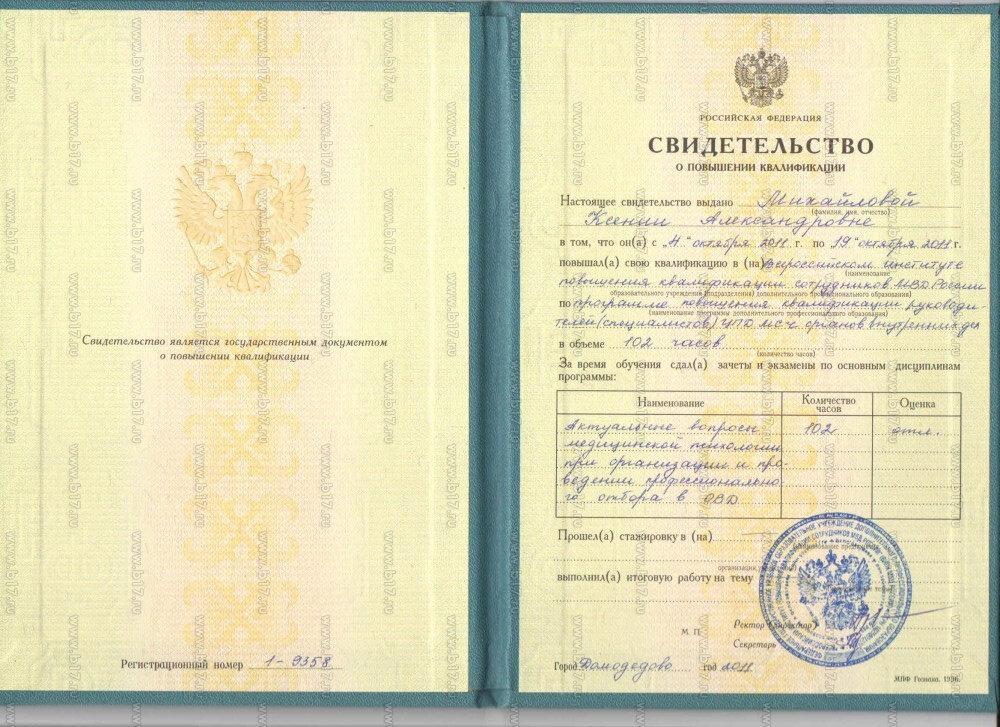 Свидетельство является государственным документом
о повышении квалификации
Регистрационный номер 1-9358
РОССИЙСКАЯ ФЕДЕРАЦИЯ
СВИДЕТЕЛЬСТВО
О ПОВЫШЕНИИ КВАЛИФИКАЦИИ
Настоящее свидетельство выдано Михайловой
(фамилия, имя, отчество)
Ксении Александровне
в том, что он(а) с „4“ октября 2011 г. по „19“ октября 2011 г.
повышал(а) свою квалификацию в (на) Всероссийском институте
(наименование
повышения квалификации сотрудников МВД России
образовательного учреждения (подразделения) дополнительного профессионального образования)
по программе повышения квалификации руководи-
(наименование программы дополнительного профессионального образования)
телей (специалистов) ЦПД МСЧ органов внутренних дел
в объеме 102 часов
(количество часов)
За время обучения сдал(а) зачеты и экзамены по основным дисциплинам
программы:
Наименование Количество часов Оценка
Актуальные вопросы 102 отл.
медицинской психологии
при организации и про-
ведении профессионально-
го отбора в ОВД
Прошел(а) стажировку в (на)
выполнил(а) итоговую работу на тему
М. П.
Ректор (директор)
Секретарь
Город Домодедово год 2011
МПФ Гознака. 1996.
www.b17.ru